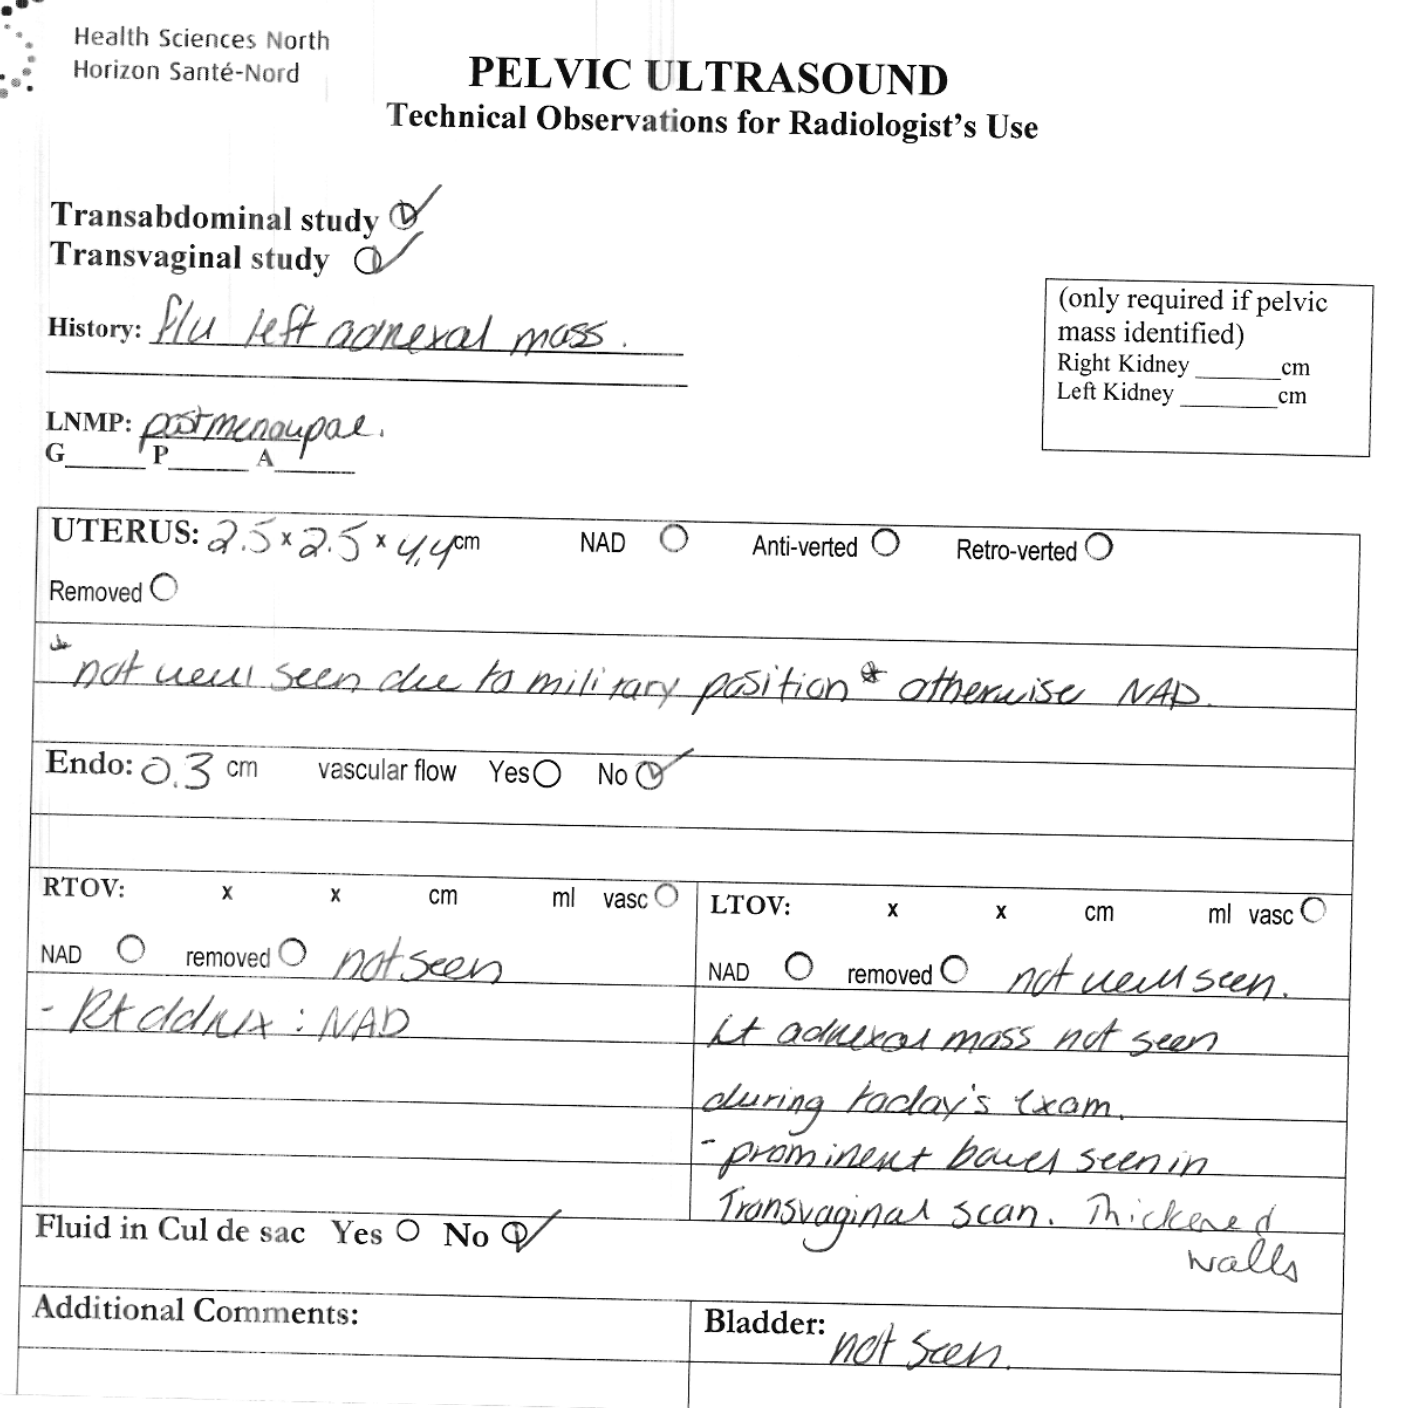 Health Sciences North
Horizon Santé-Nord
PELVIC ULTRASOUND
Technical Observations for Radiologist's Use
Transabdominal study
Transvaginal study
History: flu left adnexal mass.
(only required if pelvic
mass identified)
Right Kidney ______cm
Left Kidney ______cm
LNMP: postmenoupae.
G_____ P_____ A_____
UTERUS: 2.5 x 2.5 x 4.4 cm NAD Anti-verted Retro-verted
Removed
*not well seen due to military position* otherwise NAD.
Endo: 0.3 cm vascular flow Yes No
RTOV: x x cm ml vasc
NAD removed not seen
- Rt adnx : NAD
LTOV: x x cm ml vasc
NAD removed not well seen.
Lt adnexal mass not seen
during today's exam.
- prominent bowel seen in
Transvaginal scan. Thickened
walls
Fluid in Cul de sac Yes No
Additional Comments:
Bladder: not seen.